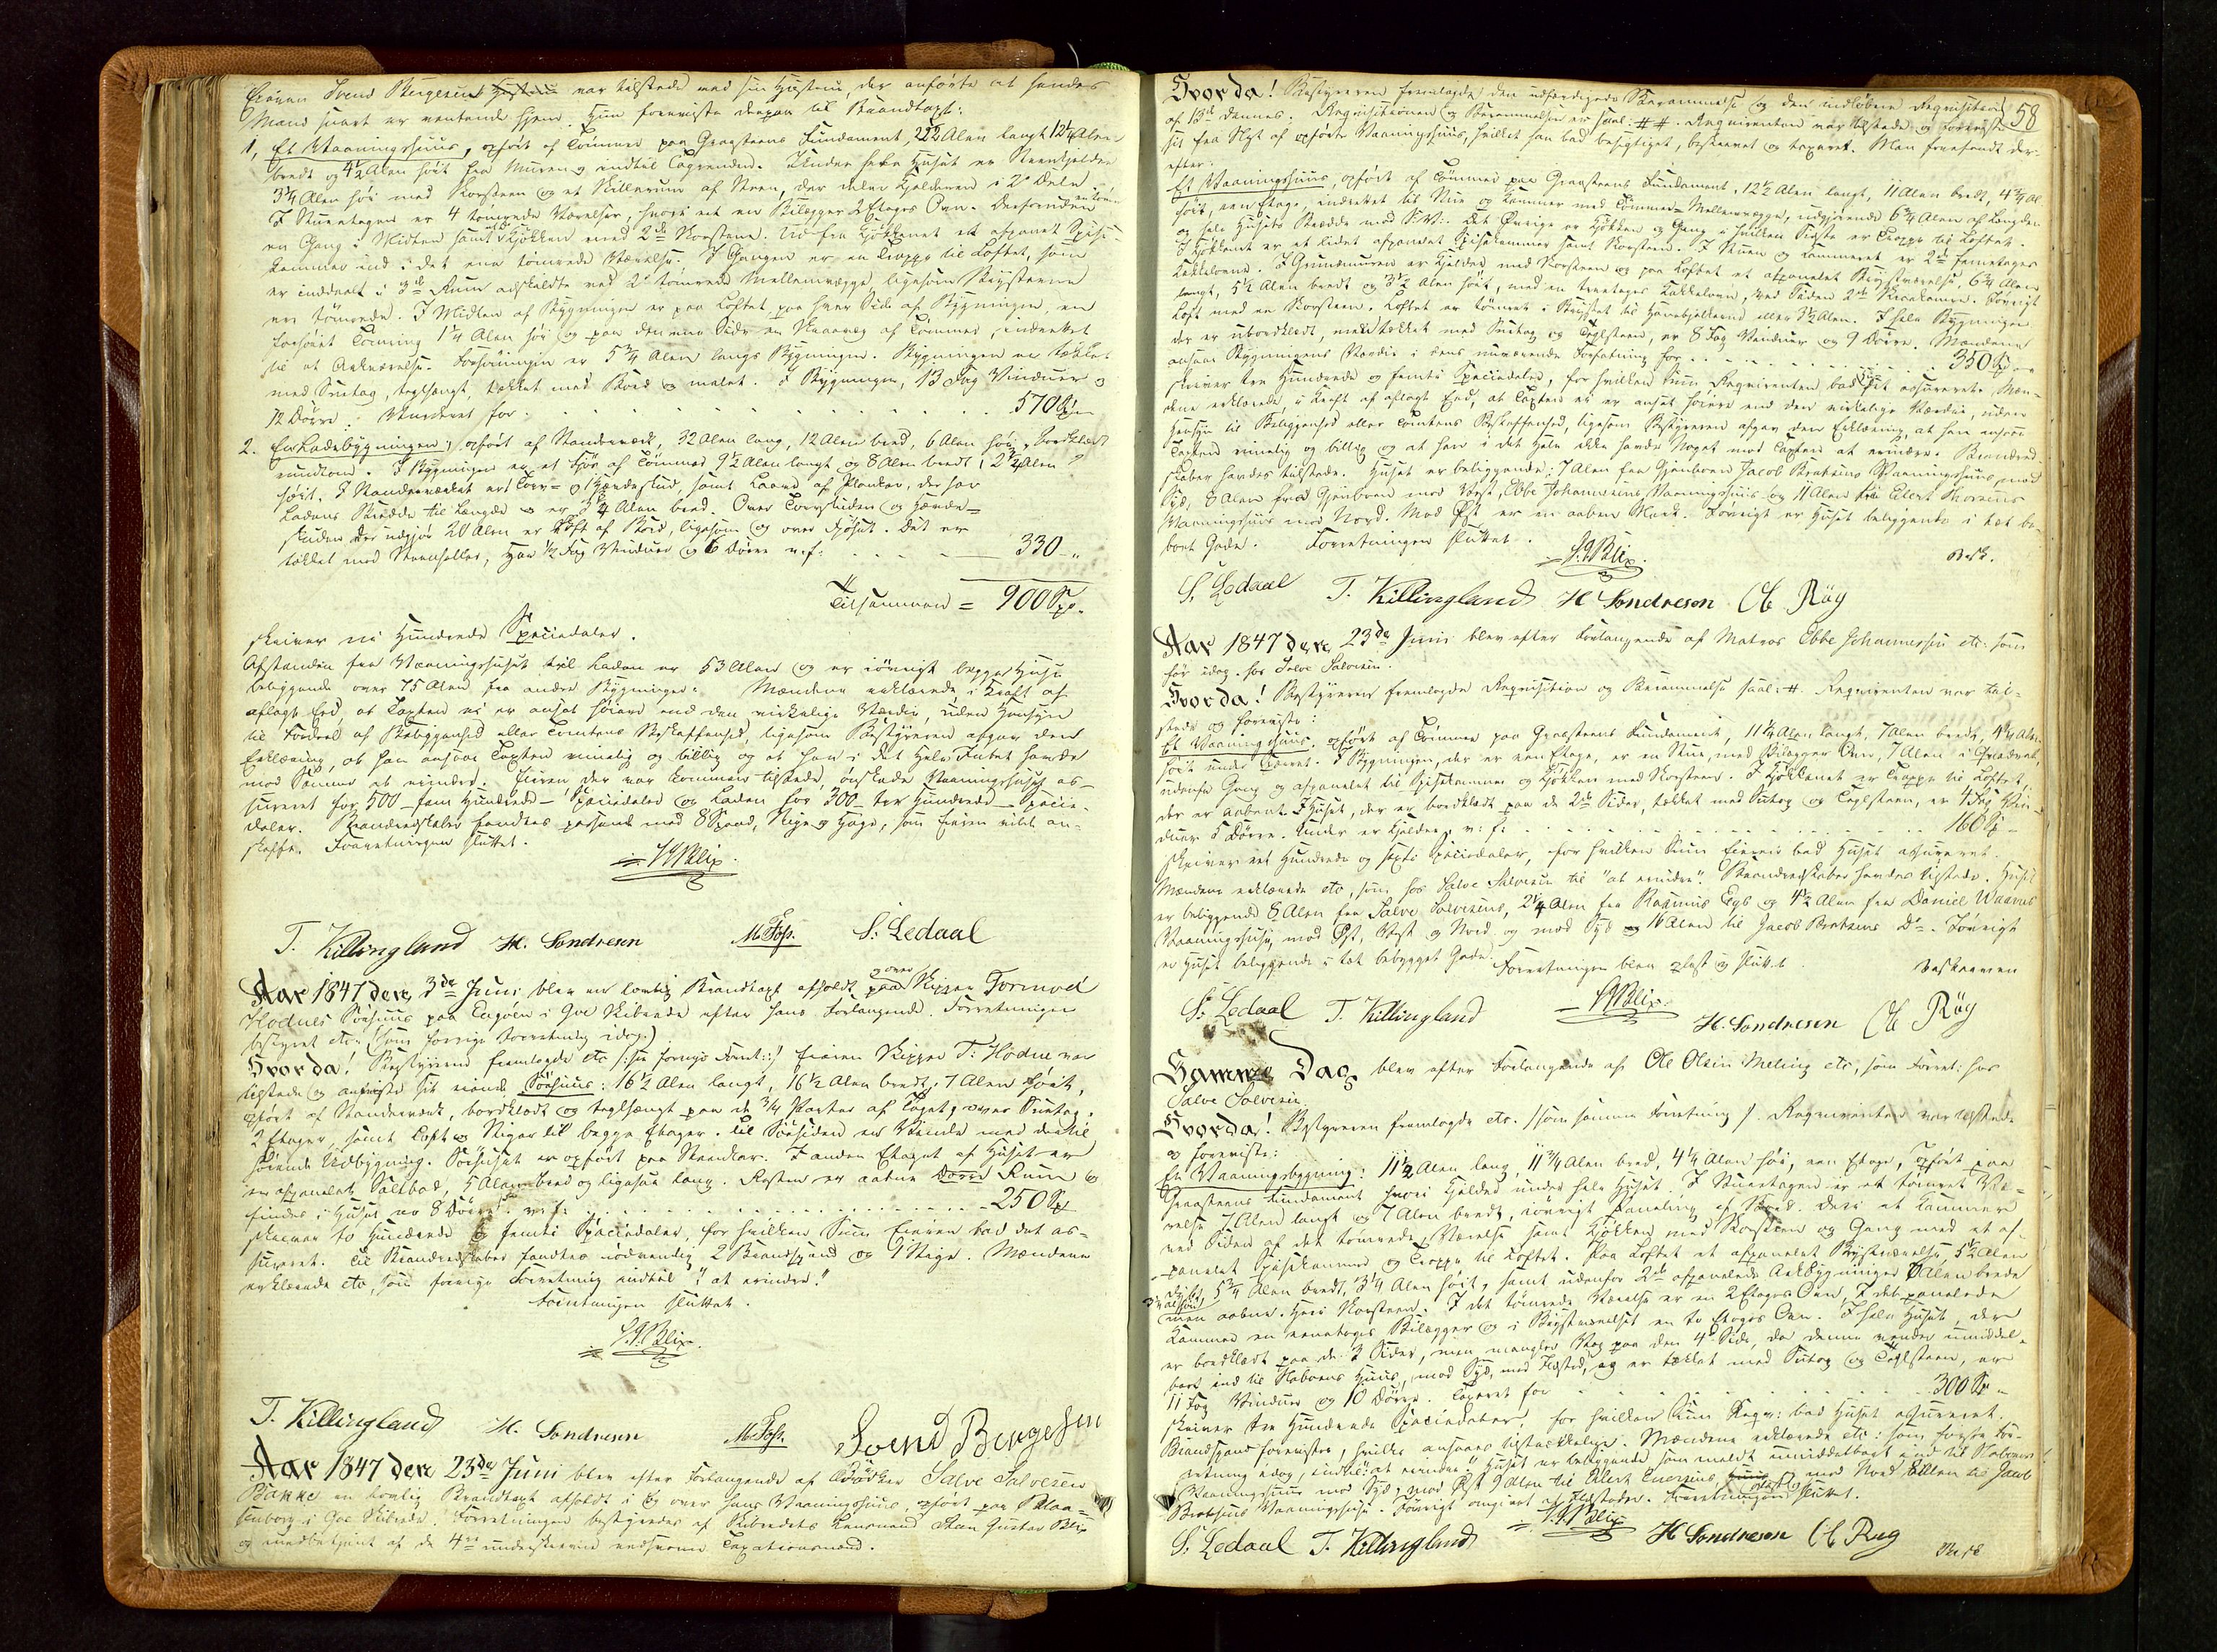 Eieren Svend Bergesens Hustrue var tilstede med sin Hustrue, der anførte at hendes
Mand snart er ventende hjem. Hun foreviste derpaa til Brandtaxt:
1, Et Vaaningshuus, opført af Tømmer paa Graasteens Fundament, 23½ Alen langt 12¼ Alen
bredt og 4½ Alen høit fra Muren og indtil Tagrenden. Under hele Huset er Steenkjelder
3¼ Alen høi med Skorsteen og et Skillerum af Steen, der deler Kjelderen i 2de Dele.
I Stueetagen er 4 tømrede Værelser, hvori een Bilægger 2 Etages Ovn. Desforuden
en Gang i Midten samt Kjøkken med 2de Skorstene. Ud fra Kjøkkenet et afpanelt Spise-
kammer ind i det ene tømrede Værelse. I Gangen er en Trappe til Loftet, som
er inddeelt i 3de Rum adskildte ved 2de tømrede Mellemvægge, ligesom Brystene
ere tømrede. I Midten af Bygningen er paa Loftet paa hver Side af Bygningen, en
forhøiet Tømring 1¼ Alen høi og paa den ene Side en Skraavæg af Tømmer, indrettet
til et Arkeværelse. Forhøiningen er 5¾ Alen langs Bygningen. Bygningen er tækket
med Sutag, teglhængt, klædet med Bord og malet. I Bygningen, 13 Fag Vinduer og
12 Dørre. Vurderet for . . . . . 570 Spd
2. En Ladebygningen, opført af Standværk, 32 Alen lang, 12 Alen bred, 6 Alen høi, bordklædt
rundtom. I Bygningen er et Fjøs af Tømmer 9½ Alen langt og 8 Alen bredt, 2¾ Alen
høit. I Standværket er Torv- og Hændeskud, samt Laave af Planker, der har
Ladens Bredde til Længde og er 3¼ Alen bred. Over Torvskuden og Hænde-
skuden der udgjør 20 Alen er Loft af Bord, ligesom og over Fjøset. Det er
tækket med Steenheller, har ½ Fag Vinduer og 6 Dørre v: f: . . . 330 "
Tilsammen = 900 Spd.
skriver ni Hundrede Speciedaler.
Afstanden fra Vaaningshuset til Laden er 53 Alen og er iøvrigt begge Huse
beliggende over 75 Alen fra andre Bygninger. Mændene erklærede i Kraft af
aflagt Eed, at Taxten ei er ansat høiere end den virkelige Værdie, uden Hensyn
til Fordeel af Beliggenhed eller Tomtens Beskaffenhed, ligesom Bestyreren afgav den
Erklæring, at han ansaae Taxten rimelig og billig og at han i det Hele Intet havde
mod Samme at erindre. Eieren, der var kommen tilstede, ønskede Vaaningshuset as-
sureret for 500 - fem Hundrede - Speciedaler og Laden for 300 - tre Hundrede - Specie-
daler. Brandredskaber fandtes passende med 8 Spand, Stige og Hage, som Eieren vilde an-
skaffe. Forretningen sluttet.
S. G. Blix.
T. Killingland H. Sondresen M. Fos. S: Ledaal
Aar 1847 den 3de Juni blev en lovlig Brandtaxt afholdt paa og over Skipper Tormod
Hodnes Søehuus paa Tagøen i Goe Skibrede efter hans Forlangende. Forretningen
bestyret etc (som forrige Forretning idag)
Hvorda! Bestyreren fremlagde etc /:see forrige Forret:/ Eieren Skipper T: Hodne var
tilstede og anviste sit eiende Søehuus: 16½ Alen langt, 16½ Alen bredt, 7 Alen høit,
opført af Standværk, bordklædt og teglhængt paa de ¾ Parter af Taget, over Sutag.
2 Etager, samt Loft og Stiger til begge Etager. Til Søesiden er Vinde med dertil
hørende Udbygning. Søehuset er opført paa Steenkar. I anden Etage af Huset er
en afpanelet Saltbod, 5 Alen bred og ligesaa lang. Resten er aabne Rum og
findes i Huset er 8 Dørre. v: f: . . . . 250 Spd
skriver to Hundrede og femti Speciedaler, for hvilken Sum Eieren bad det as-
sureret. Til Brandredskaber fandtes nødvendig 2 Brandspand og 1 Stige. Mændene
erklærede etc, som forrige Forretning indtil "at erindre."
Forretningen sluttet.
S. G. Blix.
T. Killingland H. Sondresen M. Fos. Svend Bergesen
Aar 1847 den 23de Juni blev efter Forlangende af Bødker Salve Salvesen
Bakke en lovlig Brandtaxt afholdt i og over hans Vaaningshuus, opført paa Blaa-
senborg i Goe Skibrede. Forretningen bestyredes af Skibredets Lensmand Sten Gustav Blix
og medbetjent af de 4re underskrevne eedsvorne Taxationsmænd.
58
Hvorda! Bestyreren fremlagde den udfærdigede Berammelse og den indløbne Requisition
af 13de dennes. Requisitionen og Berammelsen er saal: # #. Requirenten var tilstede og foreviste
sit fra Nyt af opførte Vaaningshuus, hvilket han bad besigtiget, beskrevet og taxeret. Man foretoges der-
efter:
Et Vaaningshuus, opført af Tømmer paa Graasteens Fundament, 12½ Alen langt, 11 Alen bredt, 4¾ Al
høit, een Etage, indrettet til Stue og Kammer med Tømmer-Mellemvægge, udgjørende 6¾ Alen af Længden
og hele Husets Bredde mod S. V. Det Øvrige er Kjøkken og Gang i hvilken Sidste er Trappe til Loftet.
I Kjøkkenet er et lidet afpanelet Spisekammer samt Skorsteen. I Stuen og Kammeret er 2de toetages
Kakkelovne. I Grundmuren er Kjelder med Skorsteen og paa Loftet et afpanelet Brystværelse, 6¾ Alen
langt, 5½ Alen bredt og 3½ Alen høit, med en toetages Kakkelovn, ved Siden 2de Skraakamre. Forrigt
Loft med en Skorsteen. Loftet er tømret i Brystet til Hanebjelkerne eller 3½ Alen. I hele Bygningen
der er ubordklædt, men tækket med Sutag og Teglsteen, er 8 Fag Vinduer og 9 Dørre. Mændene
ansaae Bygningens Værdie i dens nuværende Forfatning for . . . . . 350 Spd
skriver tre Hundrede og femti Speciedaler, for hvilken Sum Requirenten bad sit assureret. Mæn-
dene erklærede, i Kraft af aflagt Eed, at Taxten ei er ansat høiere end den virkelige Værdie, uden
Hensyn til Beliggenhed eller Tomtens Beskaffenhed, ligesom Bestyreren afgav den Erklæring, at han ansaae
Taxten rimelig og billig og at han i det Hele ikke havde Noget mod Taxten at erindre. Brandred-
skaber havdes tilstede. Huset er beliggende: 7 Alen fra Gjenboen Jacob Bertsens Vaaningshuus, mod
Syd, 8 Alen fra Gjenboen mod Vest, Ebbe Johannesens Vaaningshuus og 11 Alen fra Eilert
Vaaningshuus mod Nord. Mod Øst er en aaben Mark. Forrigt er Huset beliggende i tæt be-
boet Gade. Forretningen sluttet.
S. G. Blix.
S. Ledaal T. Killingland H Sondresen O Røg
Aar 1847 den 23de Juni blev efter Forlangende af Matros Ebbe Johannesen etc: som
før idag, hos Salve Salvesen.
Hvorda! Bestyreren fremlagde Requisition og Berammelse saal: #. Requirenten var til-
stede og foreviste:
Et Vaaningshuus, opført af Tømmer paa Graasteens Fundament, 11¼ Alen langt, 7 Alen bredt, 4¼ Alen
høit under Taget. I Bygningen, der er een Etage, er en Stue, med Bilægger Ovn, 7 Alen i Quadrat,
udenfor Gang og afpanelet til Spisekammer og Kjøkken med Skorsteen. I Kjøkkenet er Trappe til Loftet,
der er aabent. Huset, der er bordklædt paa de 2de Sider, tækket med Sutag og Teglsteen, er 4 Fag Vin-
duer 5 Dørre. Under er Kjelder, v: f: . . . . . . 160 Sp
skriver eet Hundrede og sexti Speciedaler, for hvilken Sum Eieren bad Huset assureret.
Mændene erklærede etc, som hos Salve Salvesen til "at erindre". Brandredskaber havdes tilstede. Huset
er beliggende 8 Alen fra Salve Salvesens, 2¼ Alen fra Rasmus Eegs og 4½ Alen fra Daniel Waarves
Vaaningshuse, mod Øst, Vest og Nord og mod Syd 16 Alen til Jacob Bertsens Do. Iøvrigt
er Huset beliggende i tæt bebygget Gade. Forretningen blev oplæst og sluttet.
S: Ledaal T. Killingland S. G. Blix. H. Sondresen O Røg
Samme Dag blev efter Forlangende af Ole Olsen Meling etc, som Forret: hos
Salve Salvesen.
Hvorda! Bestyreren fremlagde etc. /:som samme Forretning:/. Requirenten var tilstede
og foreviste:
En Vaaningsbygning: 11½ Alen lang, 11¾ Alen bred, 4¼ Alen høi, een Etage, opført paa
Graasteens Fundament hvori Kjelder under hele Huset. I Stueetagen er et tømret Væ-
relse 7 Alen langt og 7 Alen bredt, iøvrigt Paneling af Bord. Deri et Kammer
ved Siden af det tømrede Værelse samt Kjøkken med Skorsteen og Gang med et af-
panelet Spisekammer og Trappe til Loftet. Paa Loftet et afpanelet Brystværelse, 5½ Alen
dybt, 5¾ Alen bredt, 3¼ Alen høit, samt udenfor 2de afpanelede Arkbygninger 7 Alen brede
men aabne. Heri Skorsteen. I det tømrede Værelse er en 2 Etages Ovn, I det panelede
Kammer en eenetages Bilægger og i Brystværelset en to Etages Ovn. I hele Huset, der
er bordklædt paa de 3 Sider, men mangler Væg paa den 4de Side, da denne vender umiddel-
bart ind til Naboens Huus, mod Syd, med Ildsted, og er tækket med Sutag og Teglsteen, er
11 Fag Vinduer og 10 Dørre. Taxeret for . . . . . 300 Sp
skriver tre Hundrede Speciedaler, for hvilken Sum Reqv: bad Huset assureret.
Brandspand forevistes, hvilke ansaaes tilstrækkelige. Mændene erklærede etc: som første For-
retning idag, indtil "at erindre". Huset er beliggende som meldt umiddelbart ind til Naboens
Vaaningshuus mod Syd, mod Øst 9 Alen til Eilert Enersens mod Nord 8 Alen til Jacob
Bertsens Vaaningshuse. Iøvrigt omgivet af Ildsteder. Forretningen oplæst og sluttet.
S. G. Blix
S: Ledaal T. Killingland H Sondresen O Rug